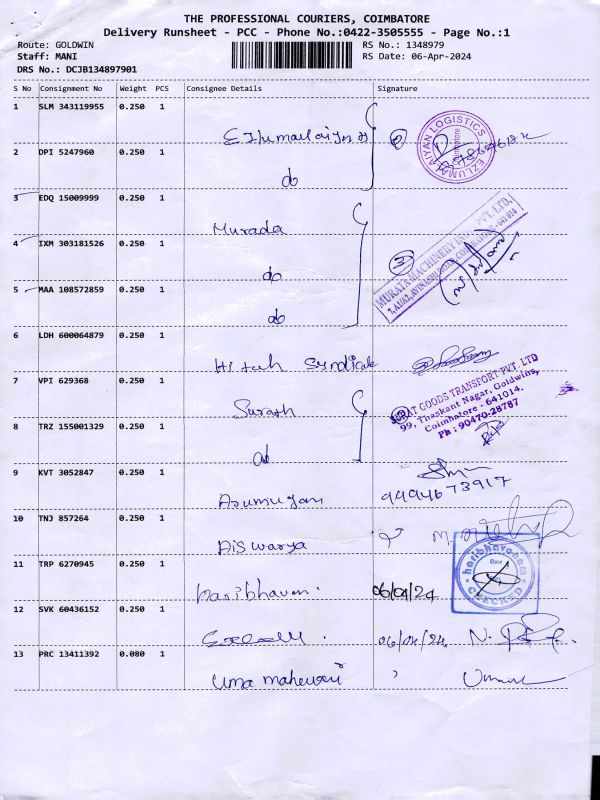 THE PROFESSIONAL COURIERS, COIMBATORE
Delivery Runsheet - PCC - Phone No.:0422-3505555 - Page No.:1
Route: GOLDWIN
Staff: MANI
DRS No.: DCJB134897901
RS No.: 1348979
RS Date: 06-Apr-2024
S No Consignment No Weight PCS Consignee Details Signature
1 SLM 343119955 0.250 1
ELUMALAIYAN LOGISTICS
Coimbatore
2 DPI 5247960 0.250 1
do
3 EDQ 15009999 0.250 1
Murada
4 IXM 303181526 0.250 1
do
3
MURATA MACHINERY INDIA PVT. LTD.
5 MAA 108572859 0.250 1
do
6 LDH 600064879 0.250 1
Hitech Syndicate
7 VPI 629368 0.250 1
Surath
SURAT GOODS TRANSPORT PVT. LTD
99, Thaskant Nagar, Goldwins,
Coimbatore - 641014.
Ph : 90470-28787
8 TRZ 155001329 0.250 1
do
9 KVT 3052847 0.250 1
Arumugam
9994673917
10 TNJ 857264 0.250 1
Aiswarya
11 TRP 6270945 0.250 1
haribhavan.
06/04/24
haribhavanam
Date
CHECKED
12 SVK 60436152 0.250 1
06/04/24.
13 PRC 13411392 0.080 1
Uma maheswari